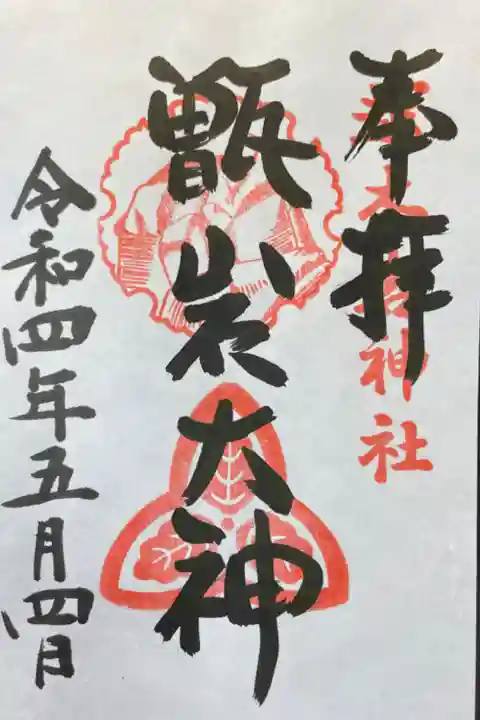 奉拝
越木岩神社
甑岩大神
令和四年五月四日